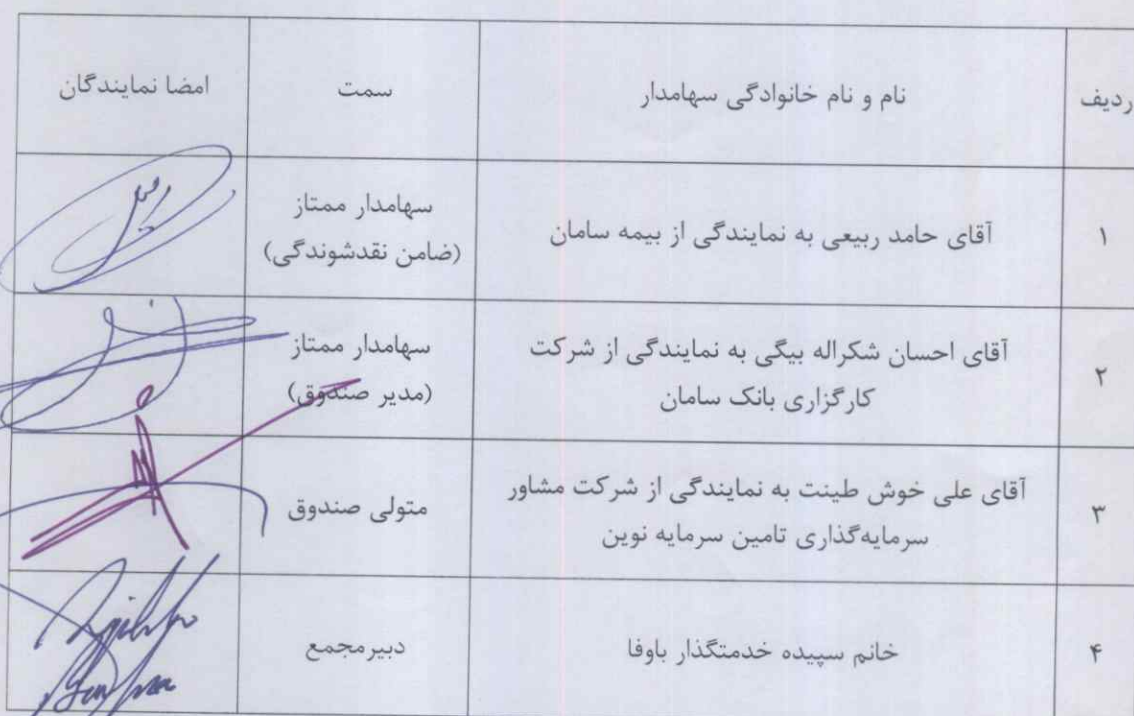 ردیف
نام و نام خانوادگی سهامدار
سمت
امضا نمایندگان
۱
آقای حامد ربیعی به نمایندگی از بیمه سامان
سهامدار ممتاز
(ضامن نقدشوندگی)
۲
آقای احسان شکراله بیگی به نمایندگی از شرکت
کارگزاری بانک سامان
سهامدار ممتاز
(مدیر صندوق)
۳
آقای علی خوش طینت به نمایندگی از شرکت مشاور
سرمایه‌گذاری تامین سرمایه نوین
متولی صندوق
۴
خانم سپیده خدمتگذار باوفا
دبیرمجمع